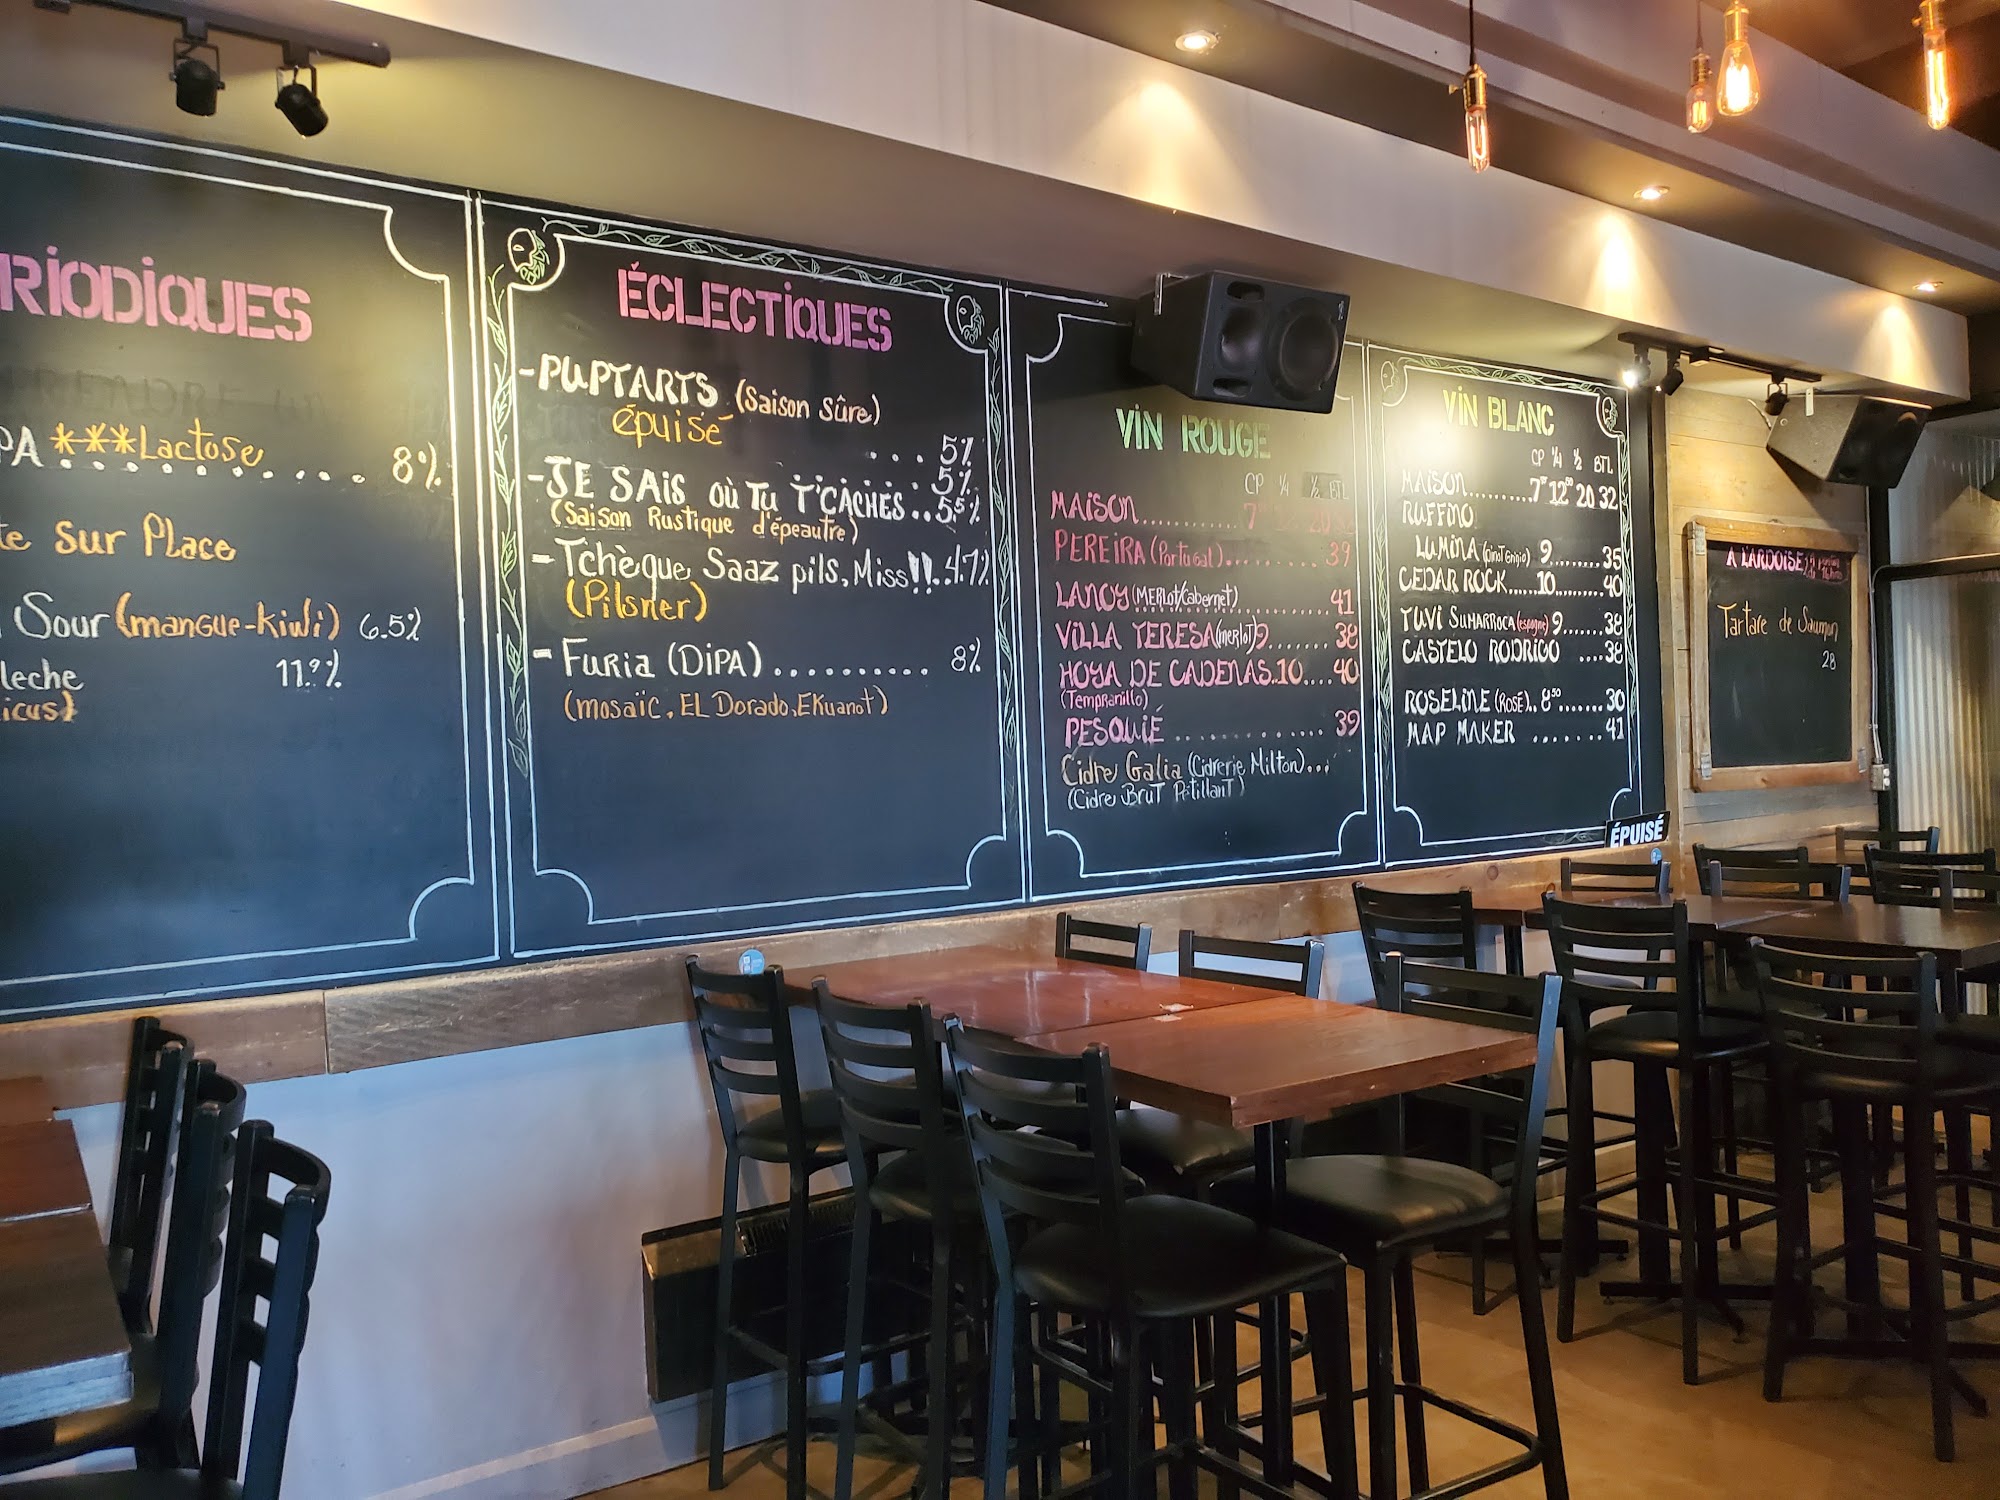 RIODIQUES
PA ***Lactose
8%
te sur Place
Sour (mangue-kiwi) 6.5%
leche 11.9%
icus)
ÉCLECTIQUES
-PUPTARTS (Saison Sûre)
épuisé
... 5%
5%
-JE SAIS OÙ TU T'CACHES..5.5%
(Saison Rustique d'épeautre)
- Tchèque Saaz pils, Miss!!..4.7%
(Pilsner)
- Furia (DiPA).......... 8%
(mosaïc, EL Dorado, EKuanot)
VIN ROUGE
CP 1/4 1/2 BTL
MAISON............ 7
PEREIRA (Portugal)........... 39
LANOY (MERLOT/Cabernet)............ 41
VILLA TERESA (merlot) 9....... 38
HOYA DE CADENAS..10....40
(Tempranillo)
PESQUIÉ ............. 39
Cidre Galia (Cidrerie Milton)...
(Cidre BruT PétillanT)
VIN BLANC
CP 1/4 1/2 BTL
MAISON.........7 12⁵⁰ 20 32
RUFFINO
LUMINA (Pinot Grigio) 9.........35
CEDAR ROCK......10.........40
YUVI SUMARROCA (espagne) 9.......38
CASTELO RODRIGO ....38
ROSELINE (ROSÉ).. 8⁵⁰.......30
MAP MAKER .......41
ÉPUISÉ
A L'ARDOISE
Tartare de Saumon
28